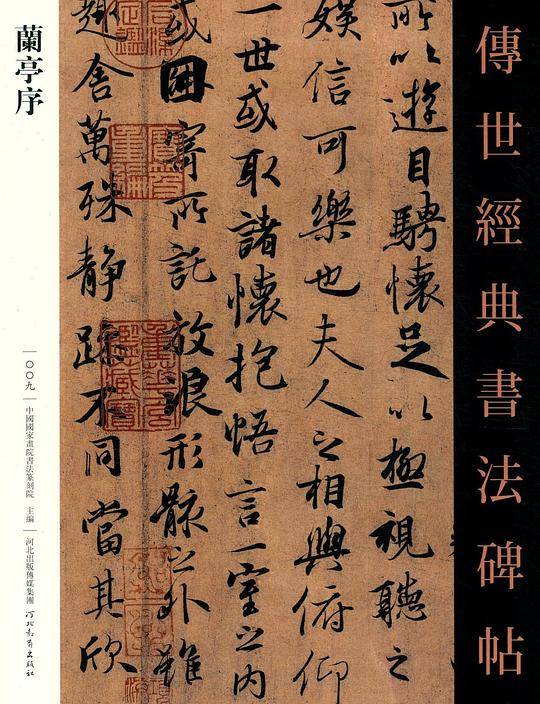 傳世經典書法碑帖
所以遊目騁懷足以極視聽之
娛信可樂也夫人之相與俯仰
一世或取諸懷抱悟言一室之內
或因寄所託放浪形骸之外雖
趣舍萬殊静躁不同當其欣
蘭亭序
〇〇九
中國國家畫院書法篆刻院 主編
河北出版傳媒集團
河北教育出版社